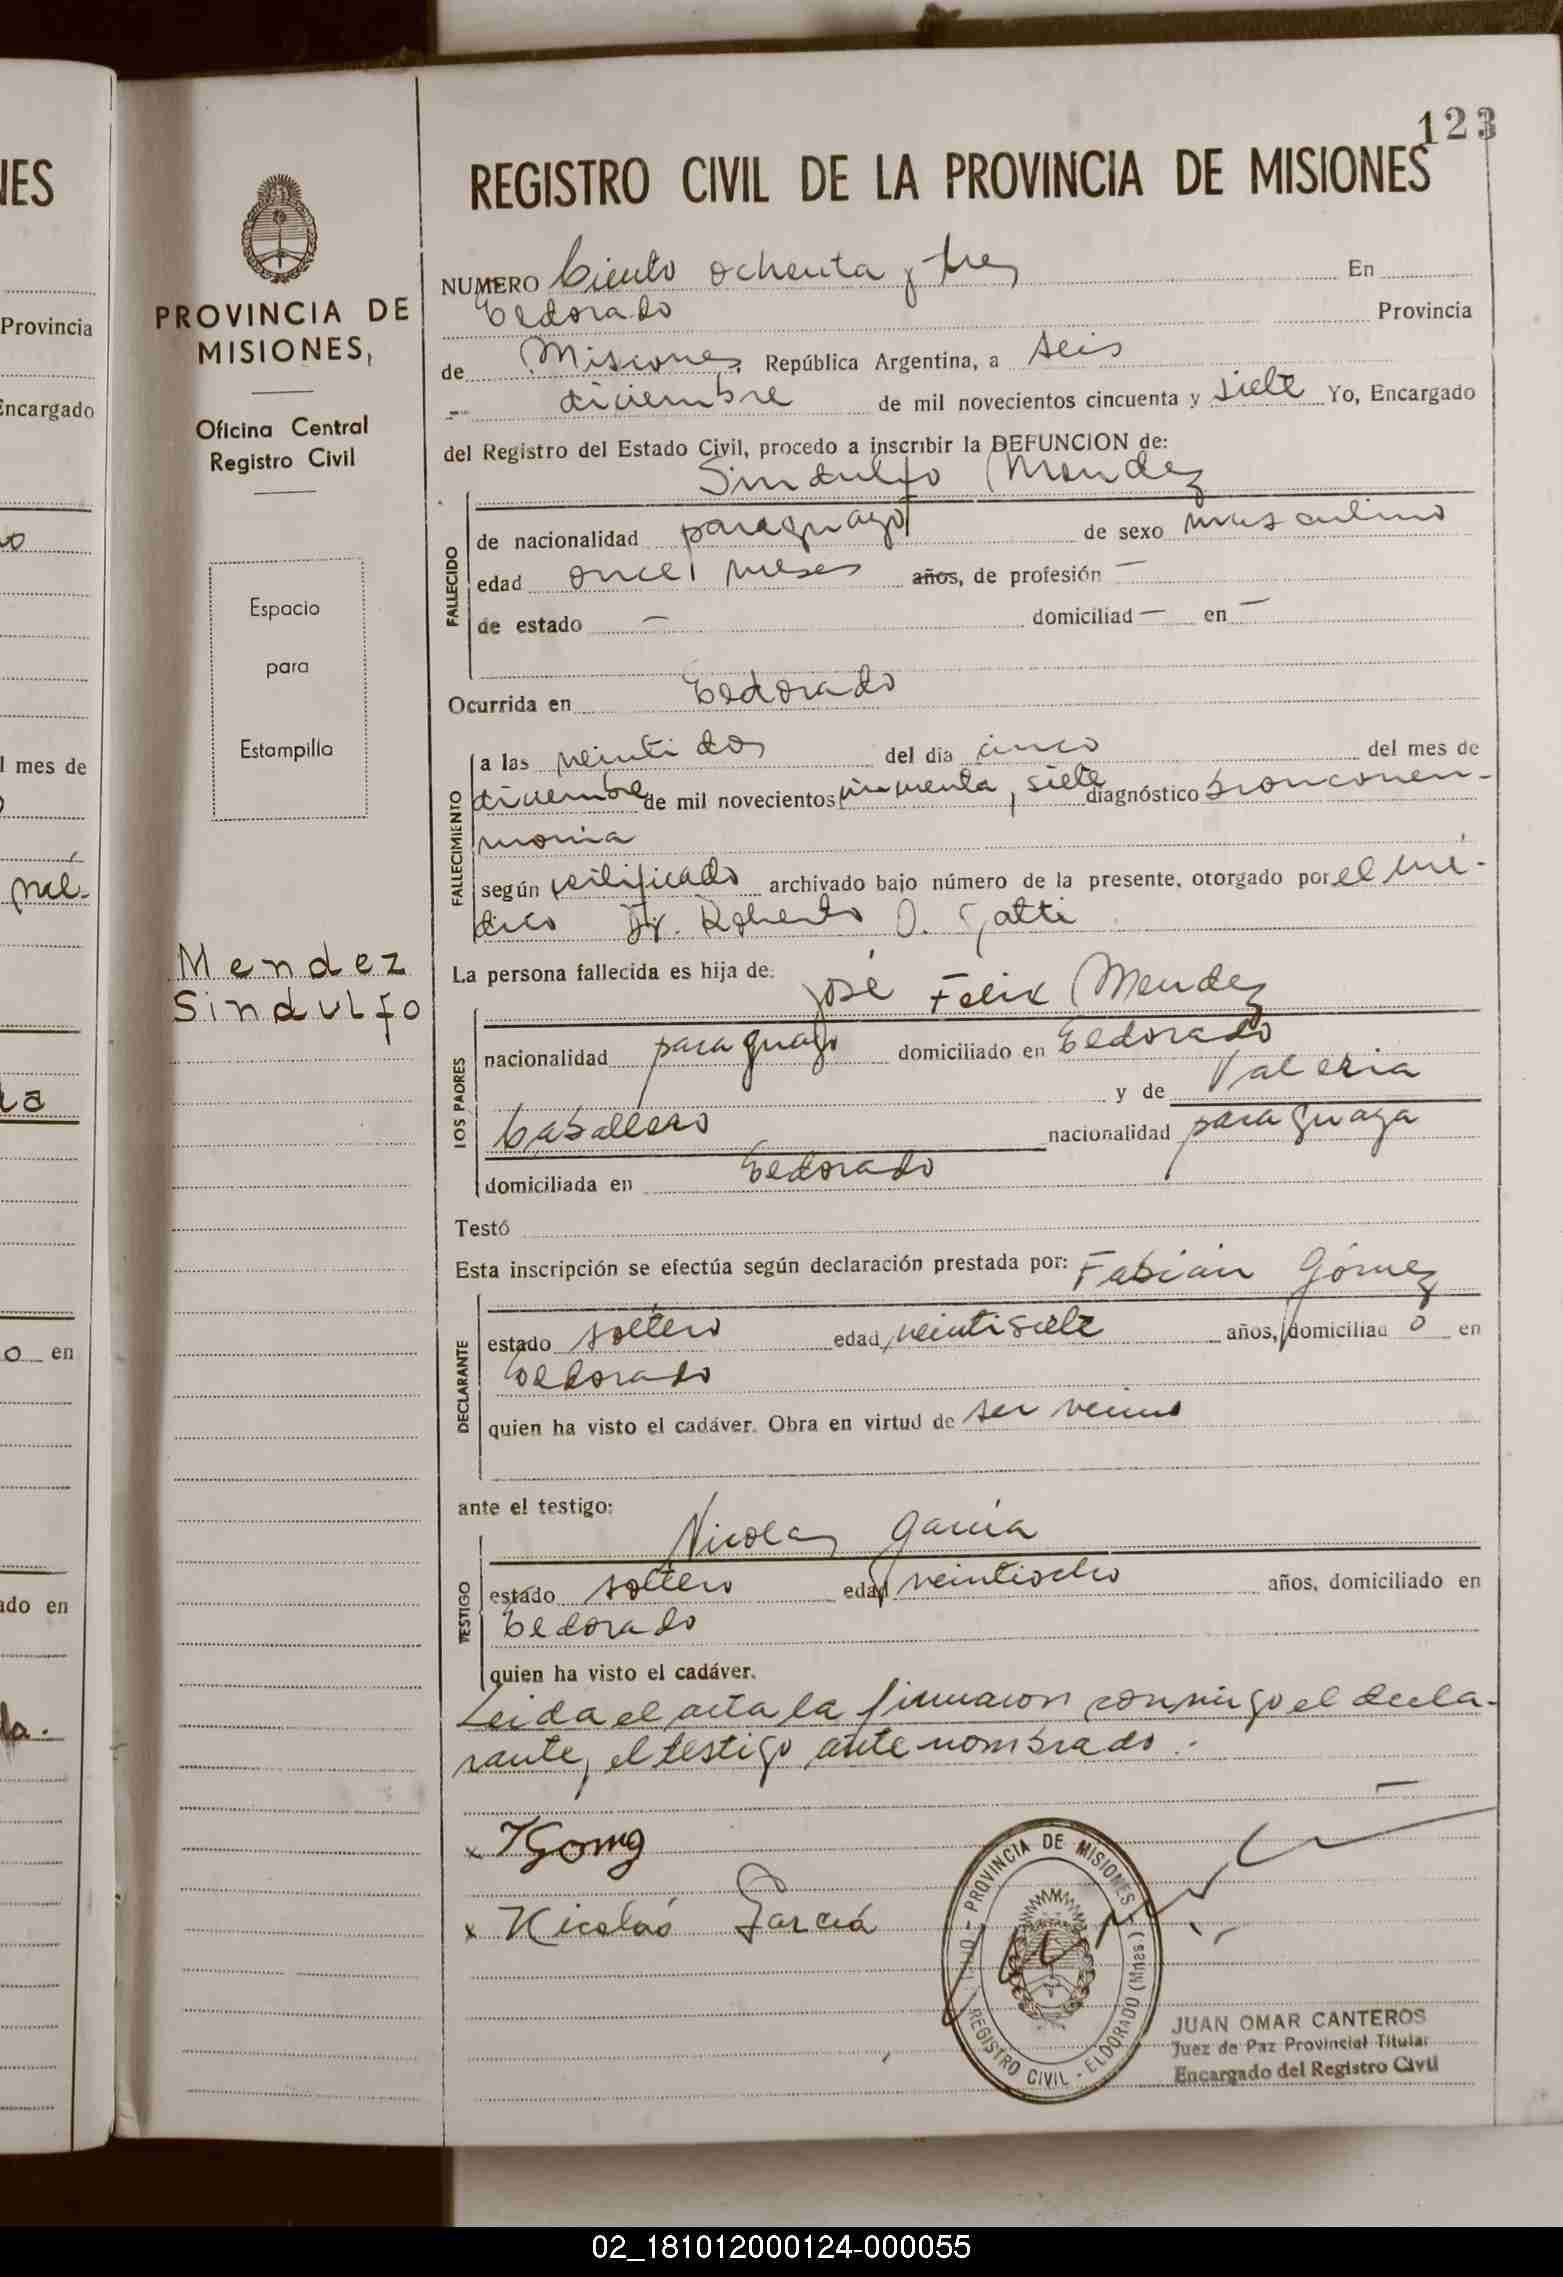 123
REGISTRO CIVIL DE LA PROVINCIA DE MISIONES
NUMERO Ciento ochenta y tres En
Eldorado Provincia
de Misiones, República Argentina, a seis
diciembre de mil novecientos cincuenta y siete Yo, Encargado
del Registro del Estado Civil, procedo a inscribir la DEFUNCION de:
Sindulfo Mendez
FALLECIDO
de nacionalidad paraguayo de sexo masculino
edad once meses años, de profesión —
de estado — domiciliad — en —
Ocurrida en Eldorado
FALLECIMIENTO
a las veintidos del dia cinco del mes de
diciembre de mil novecientos cincuenta y siete diagnóstico bronconeu-
monia
según certificado archivado bajo número de la presente, otorgado por el mé-
dico Dr. Roberto O. Gatti
La persona fallecida es hija de:
José Felix Mendez
LOS PADRES
nacionalidad paraguayo domiciliado en Eldorado
y de Valeria
Caballero nacionalidad paraguaya
domiciliada en Eldorado
Testó
Esta inscripción se efectúa según declaración prestada por: Fabián Gómez
DECLARANTE
estado soltero edad veintisiete años, domiciliad o en
Eldorado
quien ha visto el cadáver. Obra en virtud de ser vecino
ante el testigo:
Nicolas García
TESTIGO
estado soltero edad veintiocho años, domiciliado en
Eldorado
quien ha visto el cadáver.
Leida el acta la firmaron conmigo el decla-
rante y el testigo antenombrado.-
x
x Nicolás Garciá
PROVINCIA DE MISIONES
REGISTRO CIVIL - ELDORADO (Mnes)
JUAN OMAR CANTEROS
Juez de Paz Provincial Titular
Encargado del Registro Civil
PROVINCIA DE
MISIONES,
Oficina Central
Registro Civil
Espacio
para
Estampilla
Mendez
Sindulfo
NES
Provincia
Encargado
l mes de
o en
ado en
la.
02_181012000124-000055